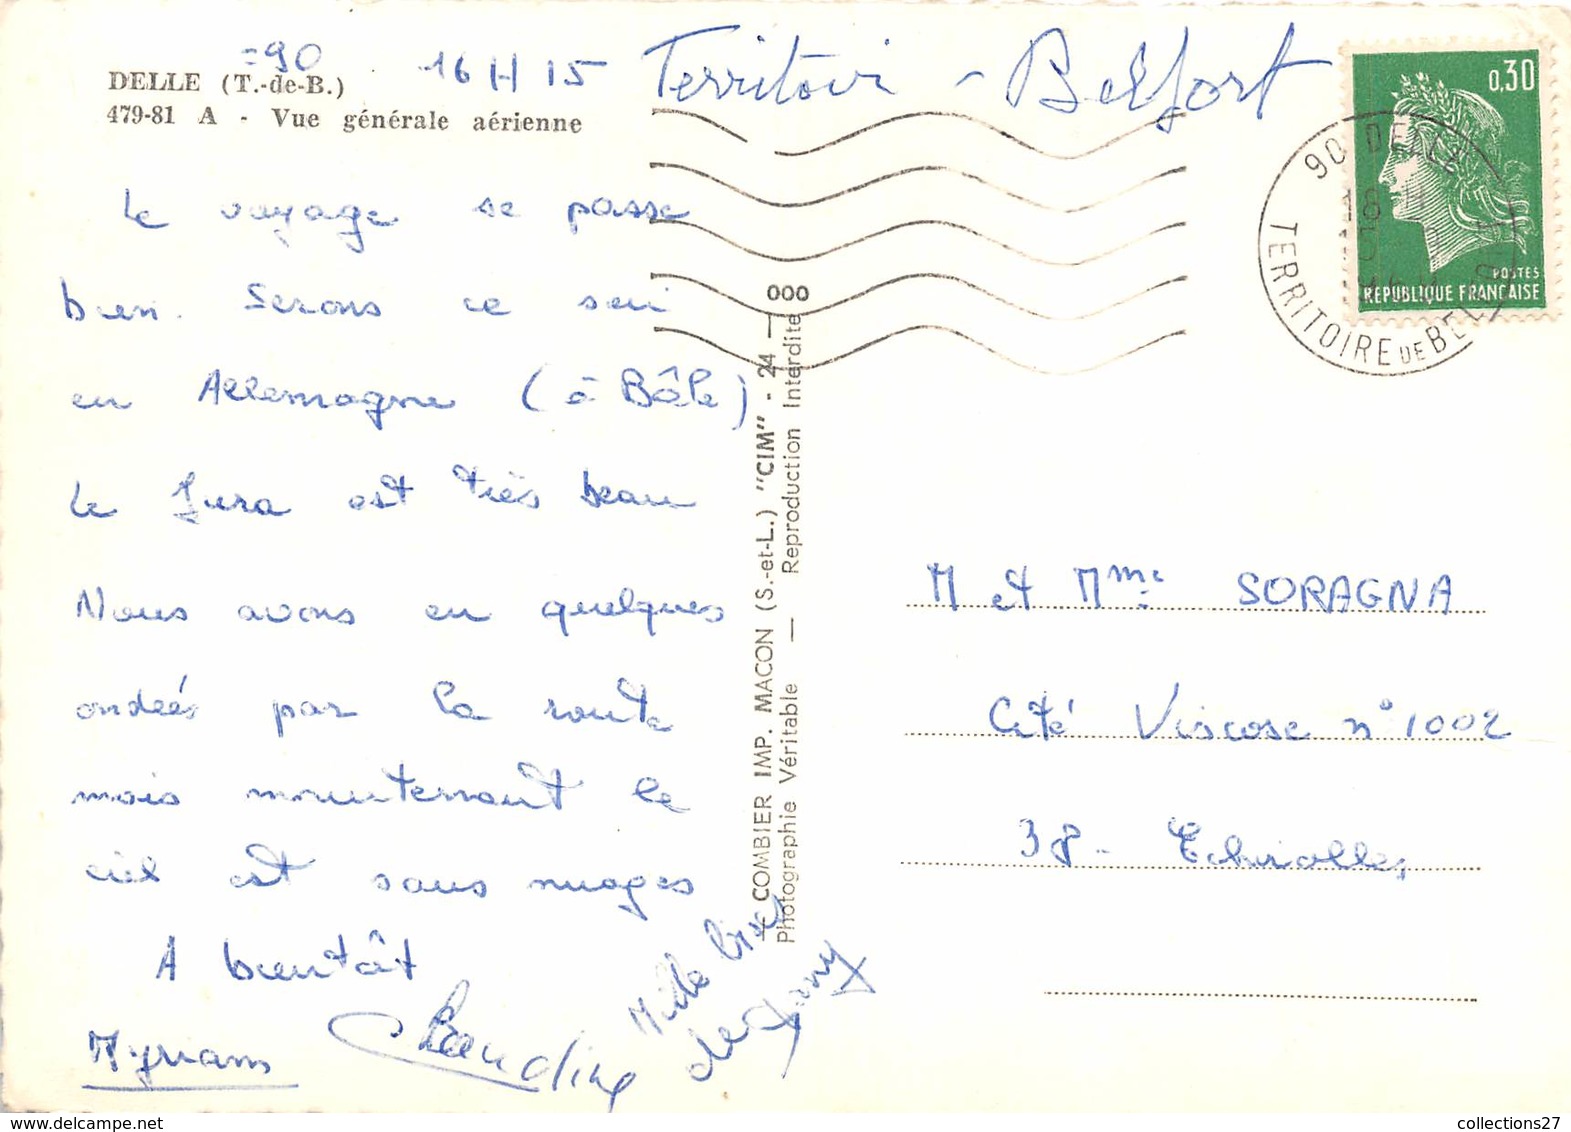 =90 16 H 15 Territoir - Belfort
DELLE (T.-de-B.)
479-81 A - Vue générale aérienne
0,30
POSTES
REPUBLIQUE FRANCAISE
90 DELLE
18 H
TERRITOIRE DE BELFORT
Le voyage se passe
bien. Serons ce soir
en Allemagne (à Bâle)
Le Jura est très beau
Nous avons eu quelques
ondées par la route
mais maintenant le
ciel est sans nuages
A bientôt
Myriam
Claudine
Mille bises
de Dany
COMBIER IMP. MACON (S.-et-L.) "CIM" - 24 — 000
Photographie Véritable — Reproduction Interdite
M et Mme SORAGNA
Cité Viscose n° 1002
38 - Echirolles
collections27